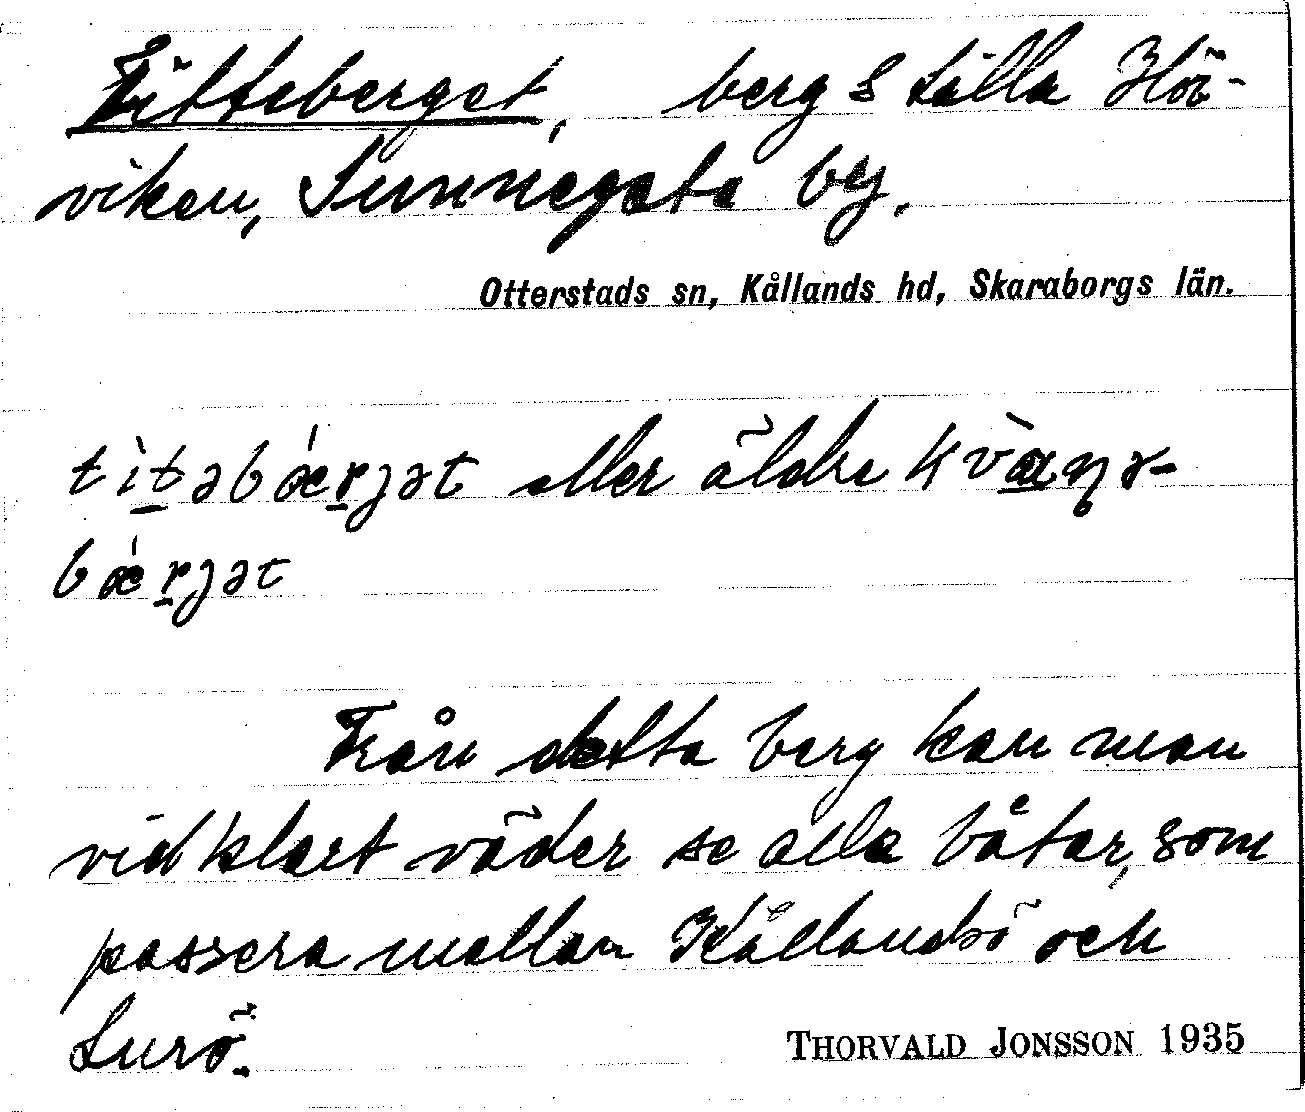 Titteberget, berg S Lilla Hör-
viken, Sunnegata by.
Otterstads sn, Kållands hd, Skaraborgs län.
tìt̠əbǽr̠jət eller äldre kvæ̠̀ŋə-
bǽr̠jət
Från detta berg kan man
vid klart väder se alla båtar, som
passera mellan Kållandsö och
Lurö.
THORVALD JONSSON 1935